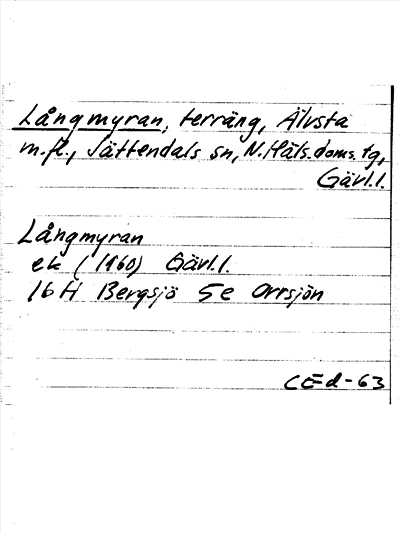 Långmyran, terräng, Älvsta
m.fl., Jättendals sn, N.Häls.doms.tg,
Gävl.l.
Långmyran
ek (1960) Gävl.l.
16 H Bergsjö 5e Orrsjön
CEd-63